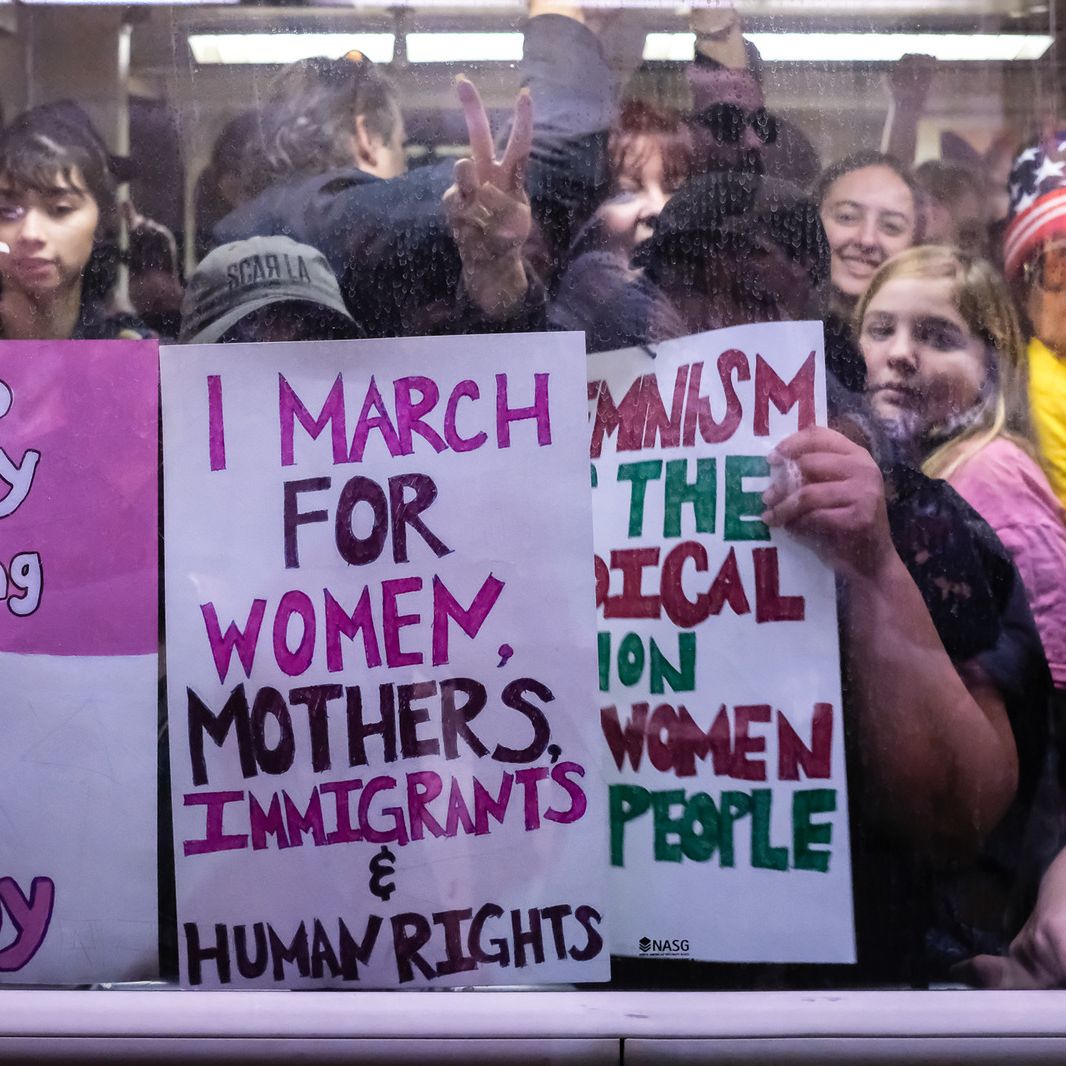 SCAЯLA
y
ng
y
I MARCH
FOR
WOMEN,
MOTHERS,
IMMIGRANTS
&
HUMAN RIGHTS
MNISM
THE
DICAL
ION
WOMEN
PEOPLE
NASG